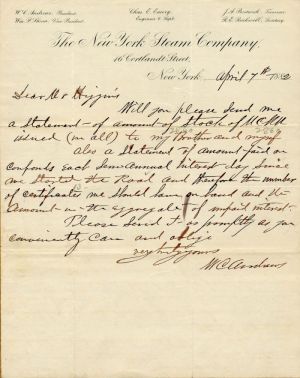 W.C. Andrews, President
Wm. P. Shinn, Vice President
Chas. E. Emery,
Engineer & Supt.
J.A. Bostwick, Treasurer
R.E. Rockwell, Secretary
The New York Steam Company.
16 Cortlandt Street,
New York April 7th 1882
Dear Mr Higgins
Will you please send me
a Statement of amount of Stock of
issued (in all) to my Brother and myself
also a Statement of amount paid on
Coupons each Semi Annual Interest day since
we the Road and the number
of Certificates we should have on hand and the
Amount in the aggregate of unpaid interest.
Please send it as promptly as you
conveniently can and oblige
very truly yours
W.C. Andrews